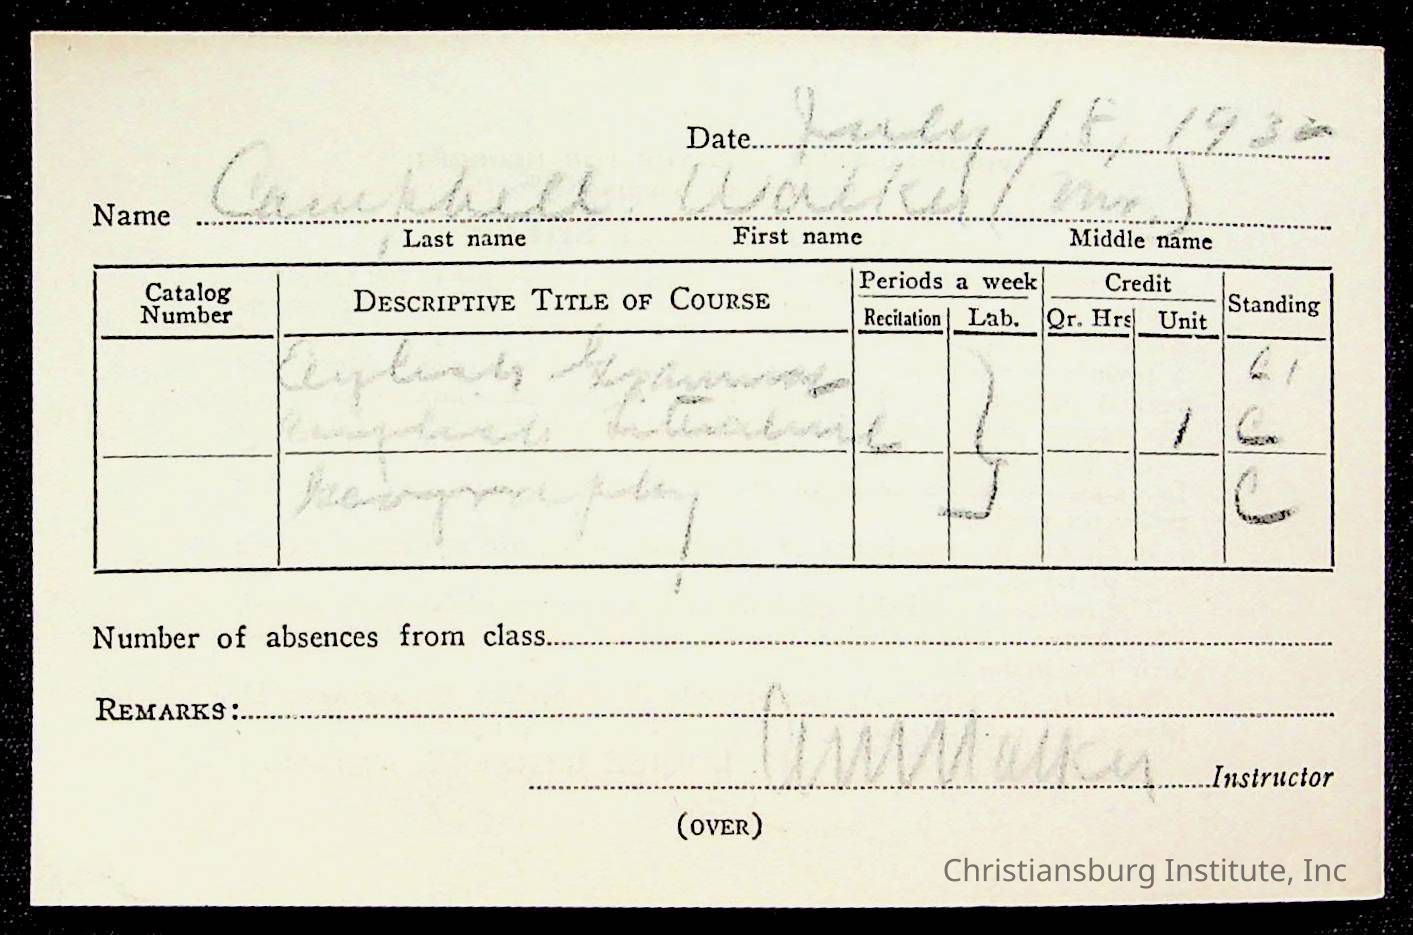 Date July 18, 193
Name Campbell Walker (Mr.)
Last name First name Middle name
Catalog Number DESCRIPTIVE TITLE OF COURSE Periods a week Credit Standing
Recitation Lab. Qr. Hrs Unit
English Grammar
English Literature 1 C
Geography C
Number of absences from class
REMARKS:
Walker Instructor
(OVER)
Christiansburg Institute, Inc